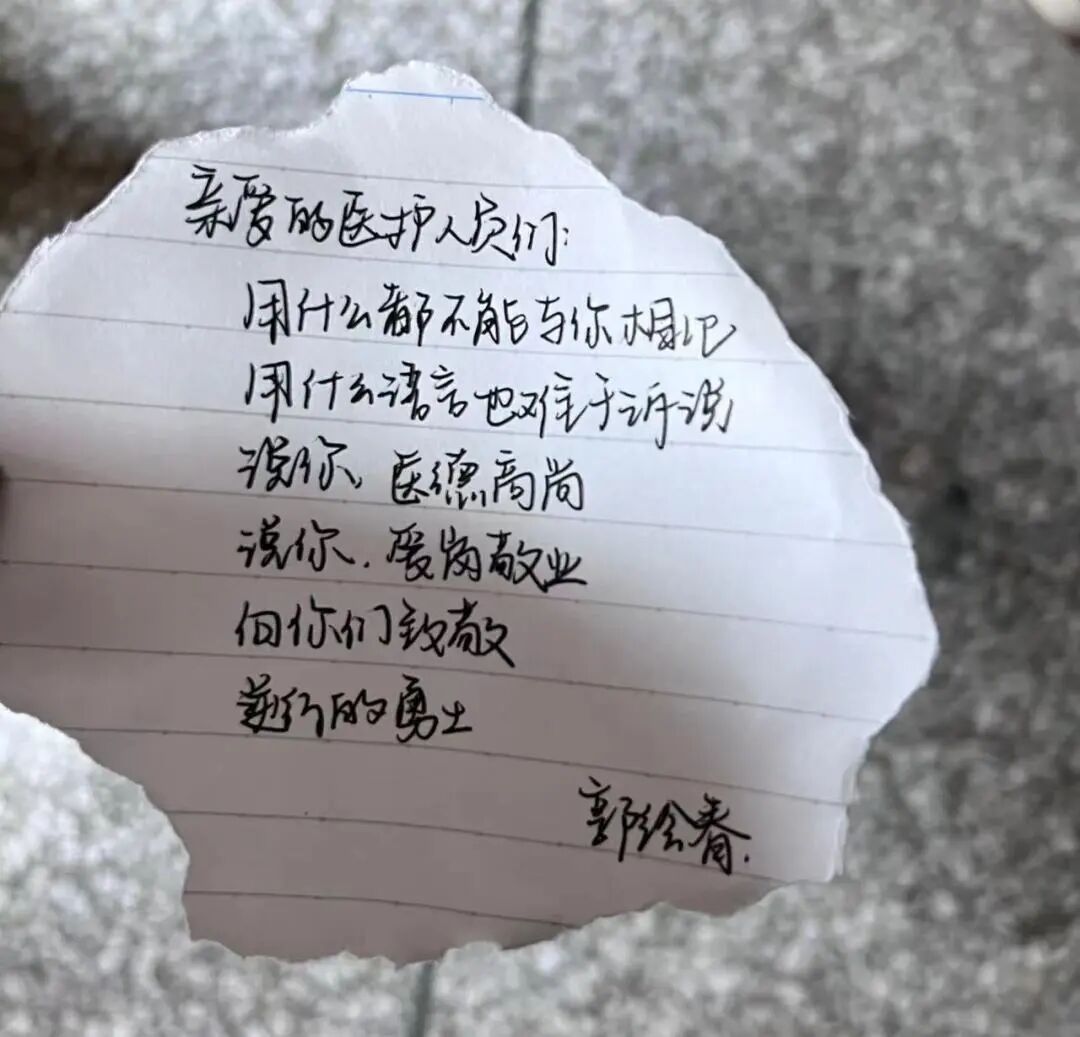 亲爱的医护人员们:
用什么都不能与你相比
用什么语言也难于诉说
说你，医德高尚
说你，爱岗敬业
向你们致敬
逆行的勇士
郭绘春.